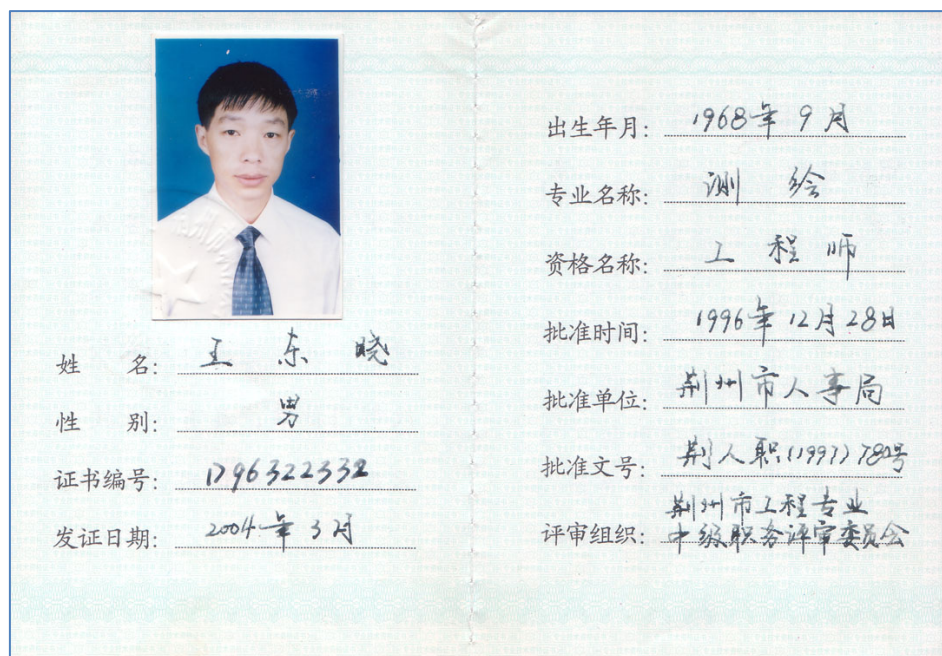 姓 名: 王东晓
性 别: 男
证书编号: D96322332
发证日期: 2004年3月
出生年月: 1968年9月
专业名称: 测绘
资格名称: 工程师
批准时间: 1996年12月28日
批准单位: 荆州市人事局
批准文号: 荆人职(1997)782号
评审组织: 荆州市工程专业
中级职务评审委员会